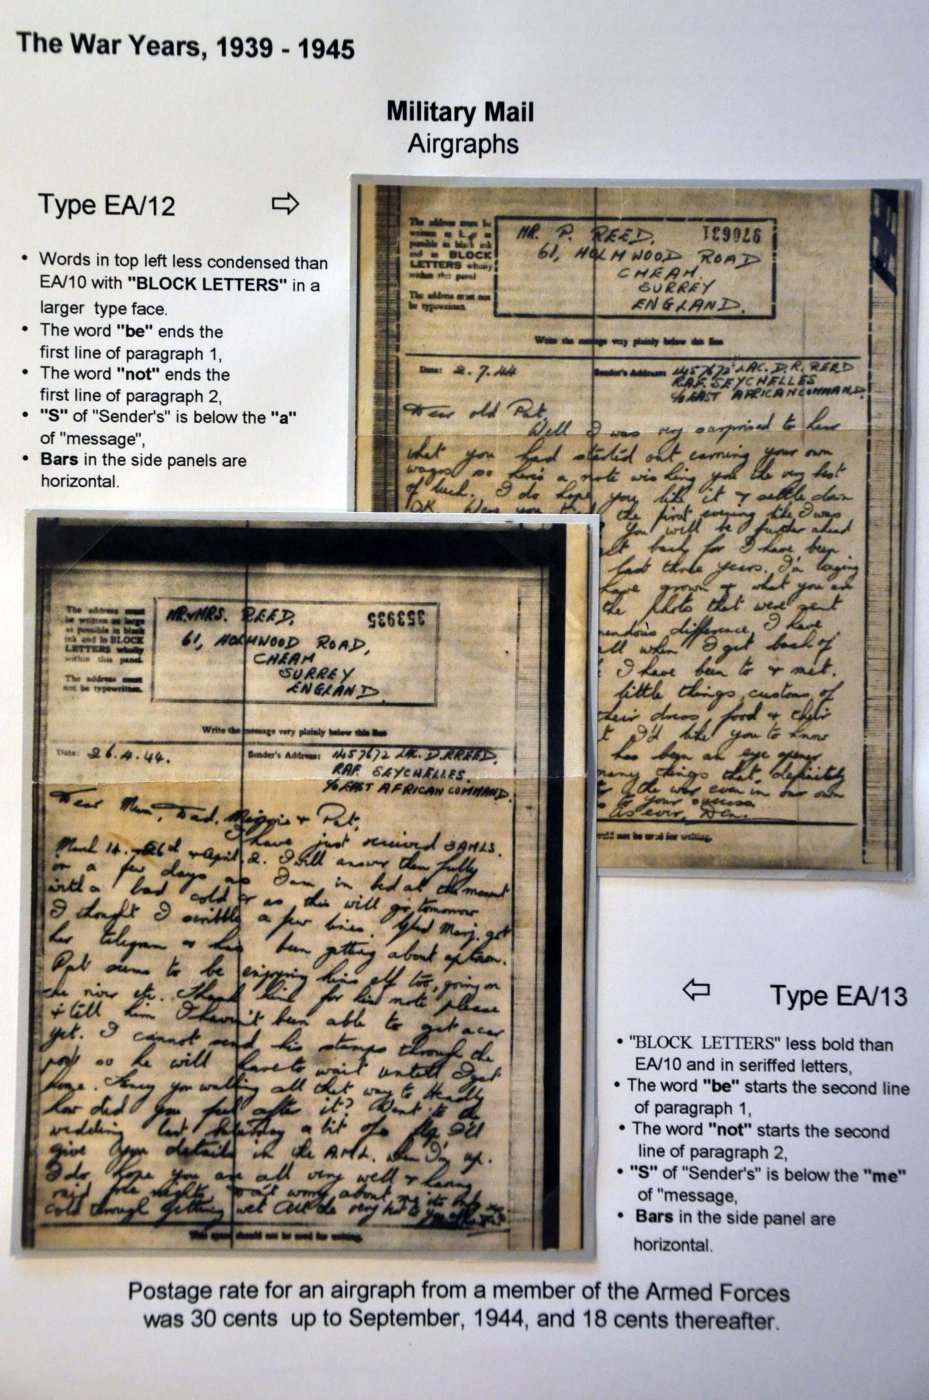 The War Years, 1939 - 1945
Military Mail
Airgraphs
Type EA/12
• Words in top left less condensed than
EA/10 with "BLOCK LETTERS" in a
larger type face.
• The word "be" ends the
first line of paragraph 1,
• The word "not" ends the
first line of paragraph 2,
• "S" of "Sender's" is below the "a"
of "message",
• Bars in the side panels are
horizontal.
The address must be
written as large as
possible in black ink
and in BLOCK
LETTERS wholly
within this panel
The address must not
be typewritten.
MR. P. REED.
61, HOLMWOOD ROAD
CHEAM.
SURREY
ENGLAND.
970631
Write the message very plainly below this line
Date: 2.7.44
Sender's Address: 1457672 LAC. D.R. REED
RAF. SEYCHELLES
c/o EAST AFRICAN COMMAND.
Dear old Pat,
Well I was very surprised to hear
that you had started out earning your own
wages so here's a note wishing you the very best
of luck. I do hope you like it & settle down
OK. Were you the first evening like I was
You will be further ahead
back for I have been
last three years. I'm longing
have grown & what you are
the photo that were sent
difference, I have
all when I get back of
I have been to & met.
little things, customs, of
their dress, food & their
I'd like you to know
has been an eye opener
many things that definitely
the war even in our own
to your success
As ever, Den.
not be used for writing.
The address must
be written as large
as possible in black
ink and in BLOCK
LETTERS wholly
within this panel.
The address must
not be typewritten.
MR. & MRS. REED.
61, HOLMWOOD ROAD,
CHEAM
SURREY
ENGLAND
353935
Write the message very plainly below this line
Date: 26.4.44.
Sender's Address: 1457672 LAC. D.R. REED.
RAF. SEYCHELLES.
c/o EAST AFRICAN COMMAND.
Dear Mum, Dad, & Pat,
I have just received 3 AMLS.
March 14. & April 2. I will answer them fully
in a few days as I am in bed at the moment
with a bad cold & as this will go tomorrow
I thought I scribble a few lines. Glad Marj. got
her telegram & has been getting about uptown.
Pat seems to be enjoying himself too, going on
the river etc. Thank him for his note please
& tell him I haven't been able to get a car
yet. I cannot send his stamps through the
post so he will have to wait until I get
home. Fancy you walking all that way to Headly
how did you feel after it? Went to a
wedding last Saturday a bit of a I'll
give you details in the A.M.L. when I'm up.
I do hope you are all very well & having
raid free nights. Don't worry about me its only a
cold through getting wet All the very best to you
This space should not be used for writing.
Type EA/13
• "BLOCK LETTERS" less bold than
EA/10 and in seriffed letters,
• The word "be" starts the second line
of paragraph 1,
• The word "not" starts the second
line of paragraph 2,
• "S" of "Sender's" is below the "me"
of "message,
• Bars in the side panel are
horizontal.
Postage rate for an airgraph from a member of the Armed Forces
was 30 cents up to September, 1944, and 18 cents thereafter.